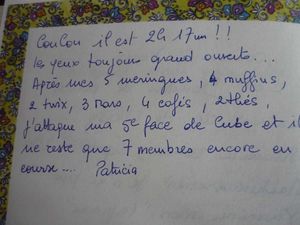 Coucou il est 2h 17mn !!
les yeux toujours grand ouverts...
Après mes 5 meringues, 4 muffins,
2 twix, 3 mars, 4 cafés, 2 thés,
j'attaque ma 5e face de cube et il
ne reste que 7 membres encore en
course.... Patricia